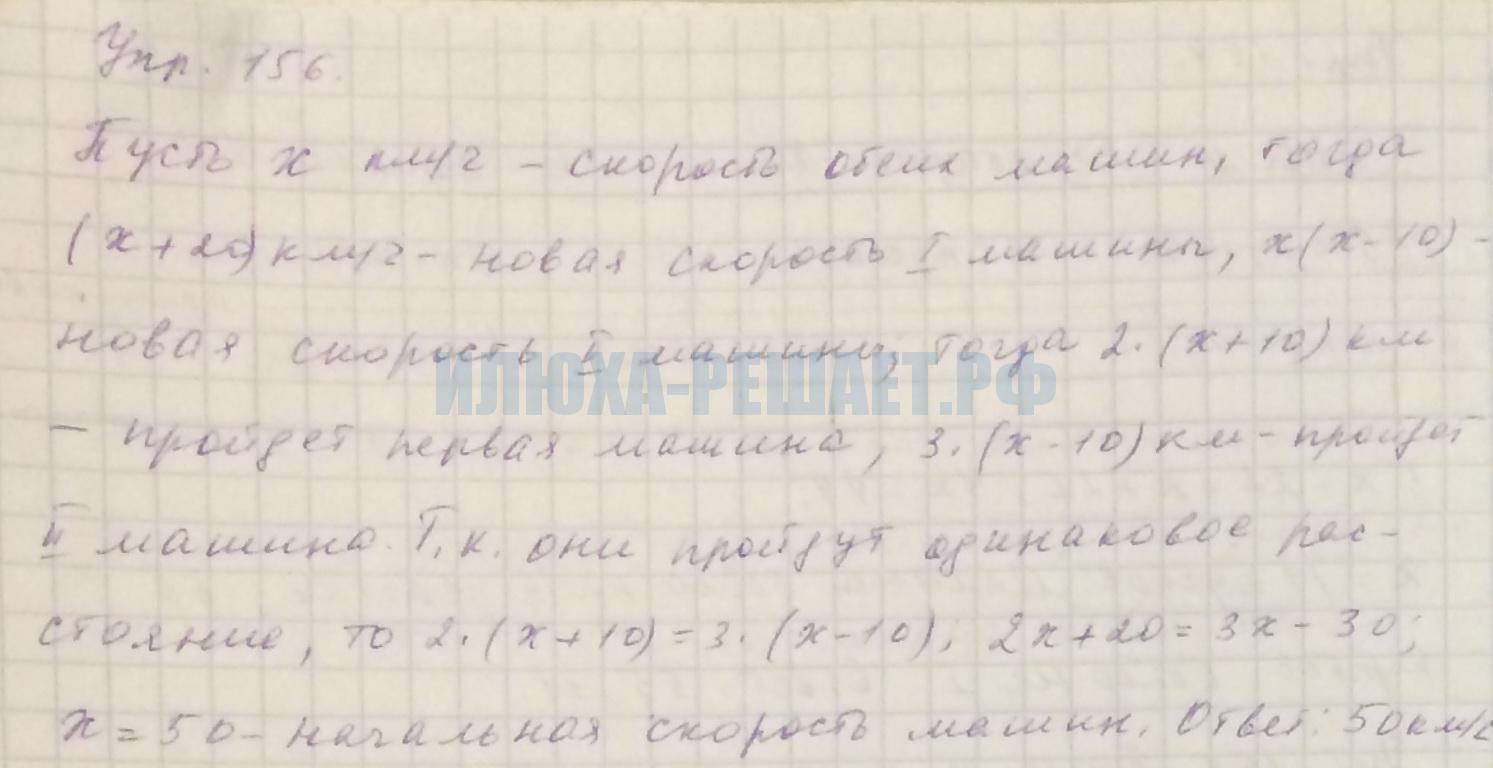 Упр. 156.
Пусть х км/ч - скорость обеих машин, тогда
(х+20) км/ч - новая скорость I машины, х(х-10) -
новая скорость II машины, тогда 2·(х+10) км
ИЛЮХА-РЕШАЕТ.РФ
- пройдет первая машина, 3·(х-10) км - пройдет
II машина. Т.к. они пройдут одинаковое рас-
стояние, то 2·(х+10)=3·(х-10); 2х+20=3х-30;
х=50 - начальная скорость машин. Ответ: 50км/ч